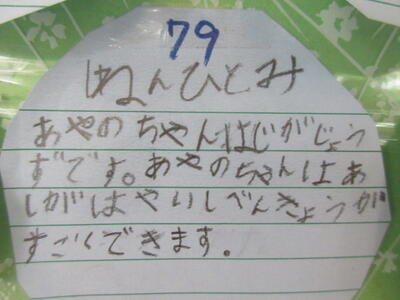 79
はねんひとみ
あやのちゃんはじがじょう
ずです。あやのちゃんはあ
しがはやいしべんきょうが
すごくできます。